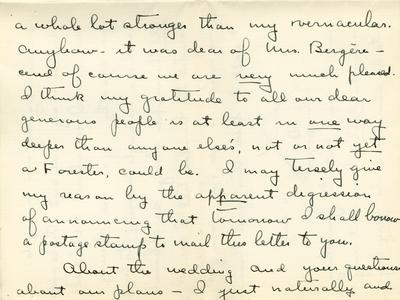 a whole lot stronger than my vernacular.
Anyhow - it was dear of Mrs. Bergère -
and of course we are very much pleased.
I think my gratitude to all our dear
generous people is at least in one way
deeper than anyone else's, not or not yet
a Forester, could be. I may tersely give
my reason by the apparent digression
of announcing that tomorrow I shall borrow
a postage stamp to mail this letter to you.
About the wedding and your questions
about our plans - I just naturally and